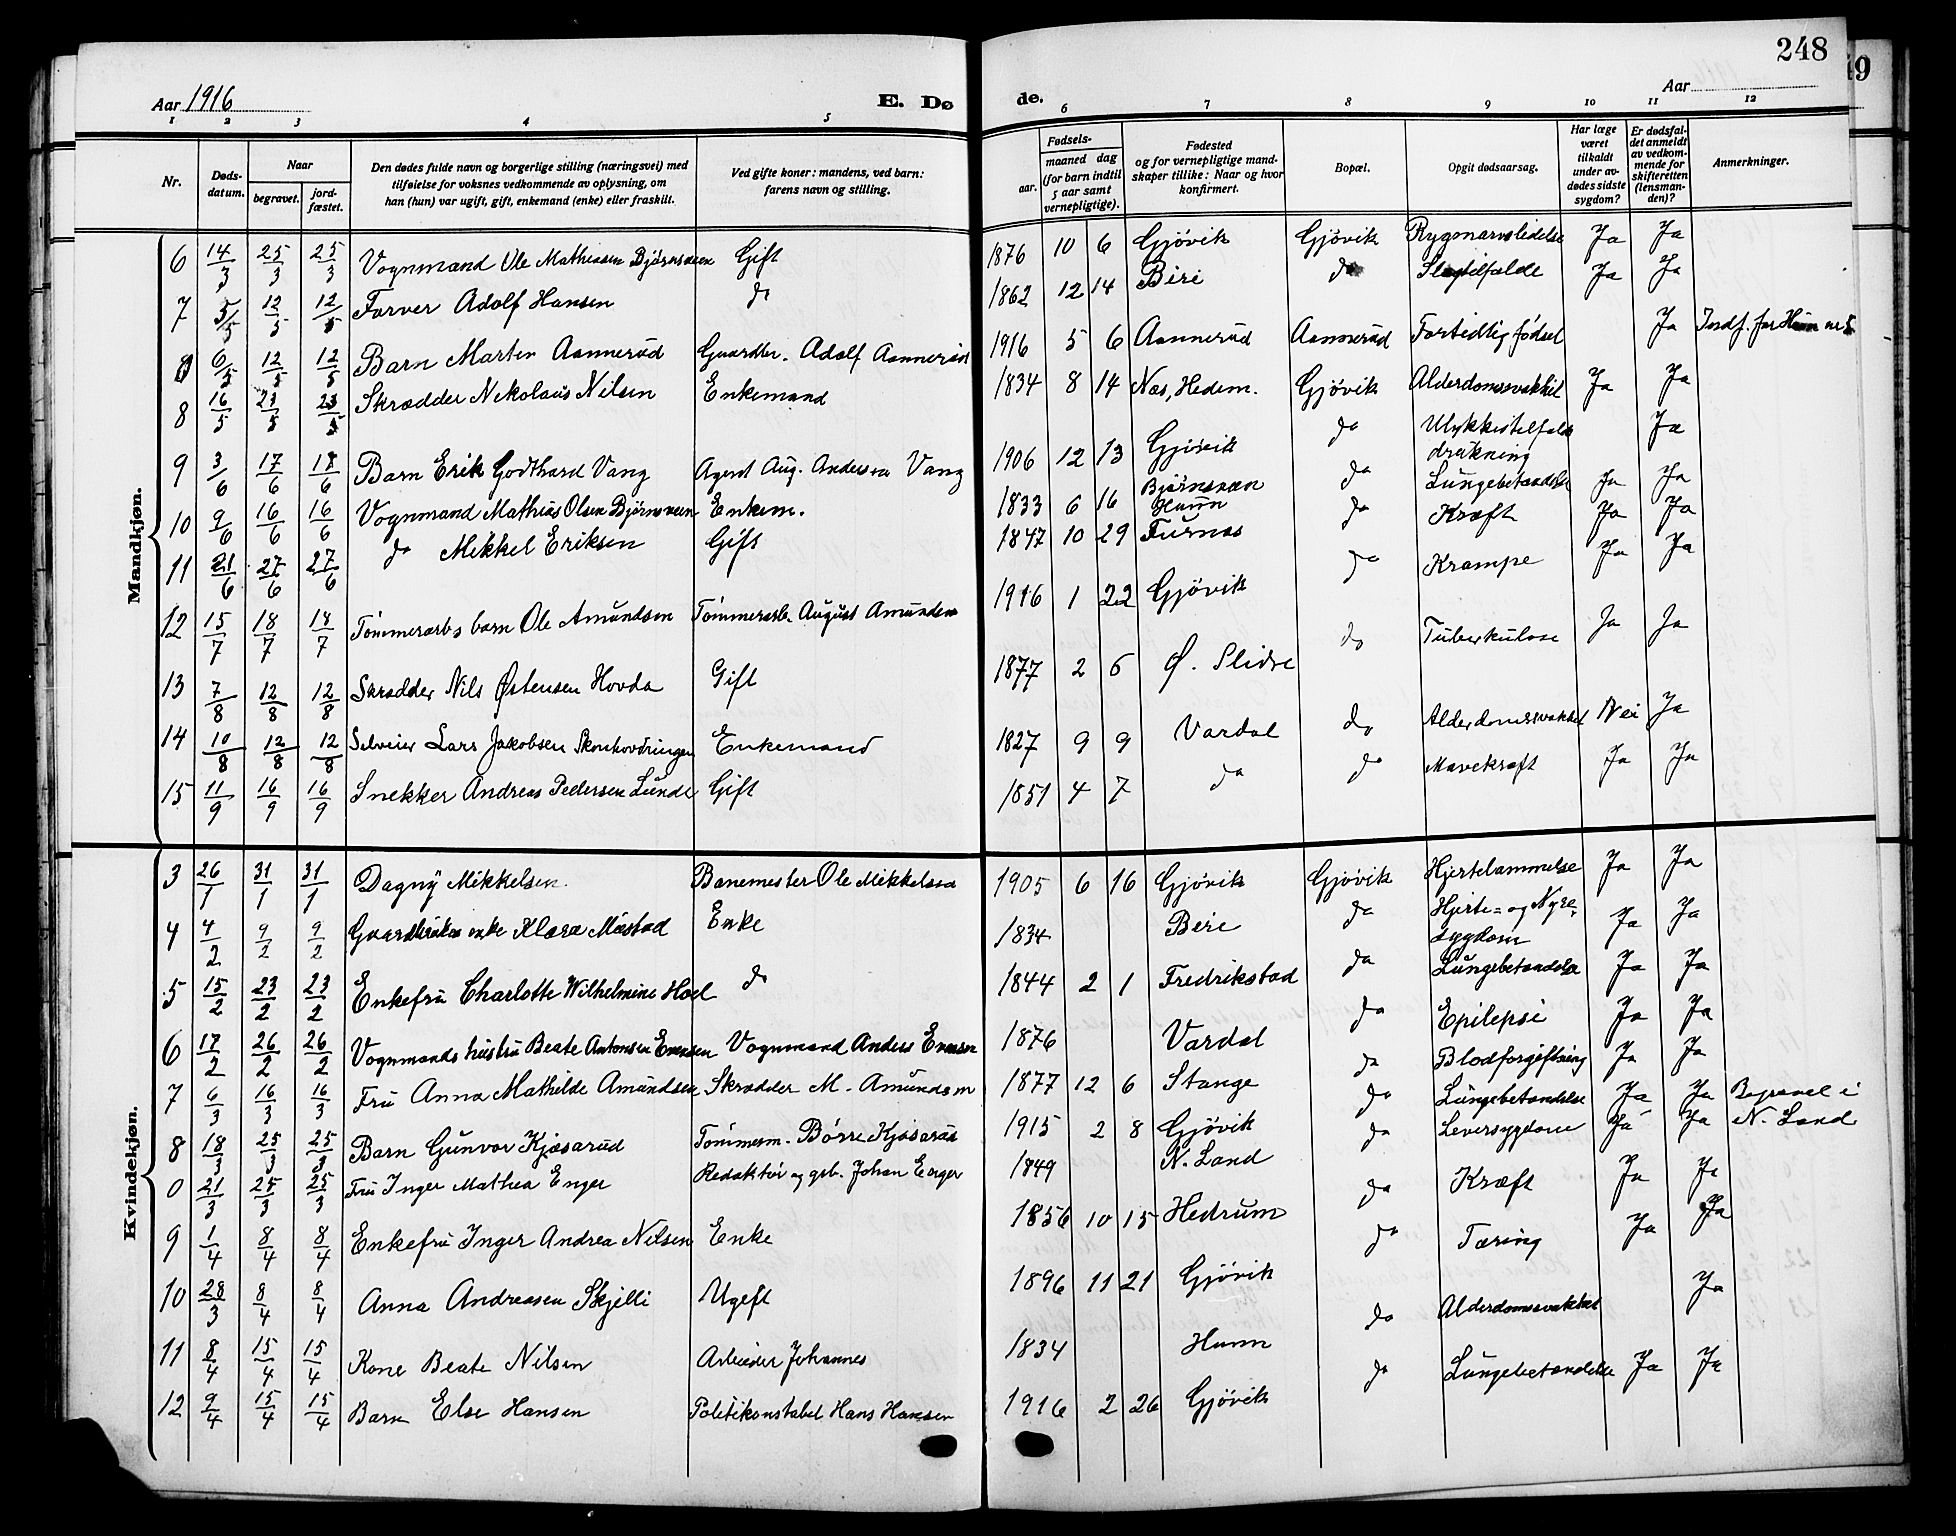 248
49
Aar 1916
E. Dø
de.
Aar
1 2 3 4 5 6 7 8 9 10 11 12
Nr.
Døds-
datum.
Naar
begravet.
jord-
fæstet.
Den dødes fulde navn og borgerlige stilling (næringsvei) med
tilføielse for voksnes vedkommende av oplysning, om
han (hun) var ugift, gift, enkemand (enke) eller fraskilt.
Ved gifte koner: mandens, ved barn:
farens navn og stilling.
Fødsels-
aar.
maaned dag
(for barn indtil
5 aar samt
vernepligtige).
Fødested
og for vernepligtige mand-
skaper tillike: Naar og hvor
konfirmert.
Bopæl.
Opgit dødsaarsag.
Har læge
været
tilkaldt
under av-
dødes sidste
sygdom?
Er dødsfal-
det anmeldt
av vedkom-
mende for
skifteretten
(lensman-
den)?
Anmerkninger.
Mandkjøn.
6 14/3 25/3 25/3 Vognmand Ole Mathiasen Bjørnsveen Gift 1876 10 6 Gjøvik Gjøvik Rygmarvslidelse Ja Ja
7 5/5 12/5 12/5 Farver Adolf Hansen do 1862 12 14 Biri do Slagtilfælde Ja Ja
0 6/5 12/5 12/5 Barn Martin Aannerud Gaardbr. Adolf Aannerud 1916 5 6 Aannerud Aannerud Fortidlig fødsel Ja Indf. for Hunn nr 5
8 16/5 23/5 23/5 Skrædder Nikolaus Nilsen Enkemand 1834 8 14 Næs, Hedem. Gjøvik Alderdomssvakhet Ja Ja
9 3/6 17/6 17/6 Barn Erik Godthard Vang Agent Aug. Andersen Vang 1906 12 13 Gjøvik do Ulykkestilfælde
drukning Ja
10 9/6 16/6 16/6 Vognmand Mathias Olsen Bjørnsveen Enkem. 1833 6 16 Bjørnsveen
Hunn do Lungebetændelse Ja Ja
11 21/6 27/6 27/6 do Mikkel Eriksen Gift 1847 10 29 Furnes do Kræft Ja Ja
12 15/7 18/7 18/7 Tømmerarbs barn Ole Amundsen Tømmerarb. August Amundsen 1916 1 22 Gjøvik do Krampe Ja Ja
13 7/8 12/8 12/8 Skrædder Nils Østensen Hovda Gift 1877 2 6 Ø. Slidre do Tuberkulose Ja Ja
14 10/8 12/8 12/8 Selveier Lars Jakobsen Skonhovdringen Enkemand 1827 9 9 Vardal do Alderdomssvakhet Nei Ja
15 11/9 16/9 16/9 Snekker Andreas Pedersen Lunde Gift 1851 4 7 do do Mavekræft Ja Ja
Kvindekjøn.
3 26/1 31/1 31/1 Dagny Mikkelsen. Banemester Ole Mikkelsen 1905 6 16 Gjøvik Gjøvik Hjertelammelse Ja Ja
4 4/2 9/2 9/2 Gaardbruker enke Klara Mustad Enke 1834 Biri do Hjerte- og Nyre-
sygdom Ja Ja
5 15/2 23/2 23/2 Enkefru Charlotte Wilhelmine Hoel do 1844 2 1 Fredrikstad do Lungebetændelse Ja Ja
6 17/2 26/2 26/2 Vognmands hustru Beate Antonsen Evensen Vognmand Anders Evensen 1876 Vardal do Epilepsi Ja Ja
7 6/3 16/3 16/3 Fru Anna Mathilde Amundsen Skrædder M. Amundsen 1877 12 6 Stange do Blodforgiftning Ja Ja
8 18/3 25/3 25/3 Barn Gunvor Kjøsarud Tømmerm. Børre Kjøsarud 1915 2 8 Gjøvik do Lungebetændelse Ja Ja
0 21/3 25/3 25/3 Fru Inger Mathea Enger Redaktør og gb. Johan Enger 1849 N. Land do Leversygdom Ja Ja Begravet i
N. Land
9 1/4 8/4 8/4 Enkefru Inger Andrea Nilsen Enke 1856 10 15 Hedrum do Kræft Ja Ja
10 28/3 8/4 8/4 Anna Andreasen Skjelli Ugift 1896 11 21 Gjøvik do Tæring Ja Ja
11 8/4 15/4 15/4 Kone Beate Nilsen Arbeider Johannes 1834 Hunn do Alderdomssvakhet Ja
12 9/4 15/4 15/4 Barn Else Hansen Politikonstabel Hans Hansen 1916 2 26 Gjøvik do Lungebetændelse Ja Ja